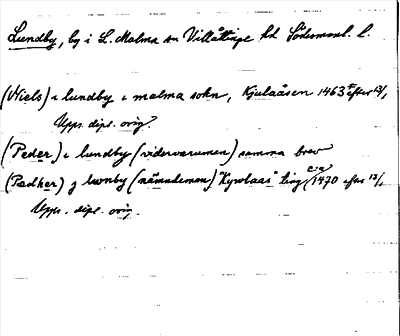 Lundby, by i L. Malma sn Villåttinge hd Södermanl. l.
(Niels) i lundby i malma sokn, Kjulaåsen 1463 efter 13/1,
Upps. dipl. orig.
(Peder) i lundby (vidervarumen) samma brev
(Pedher) j lwnby (nämndeman) "Kywlaas" ting 1470 efter 13/1,
Upps. dipl. orig.